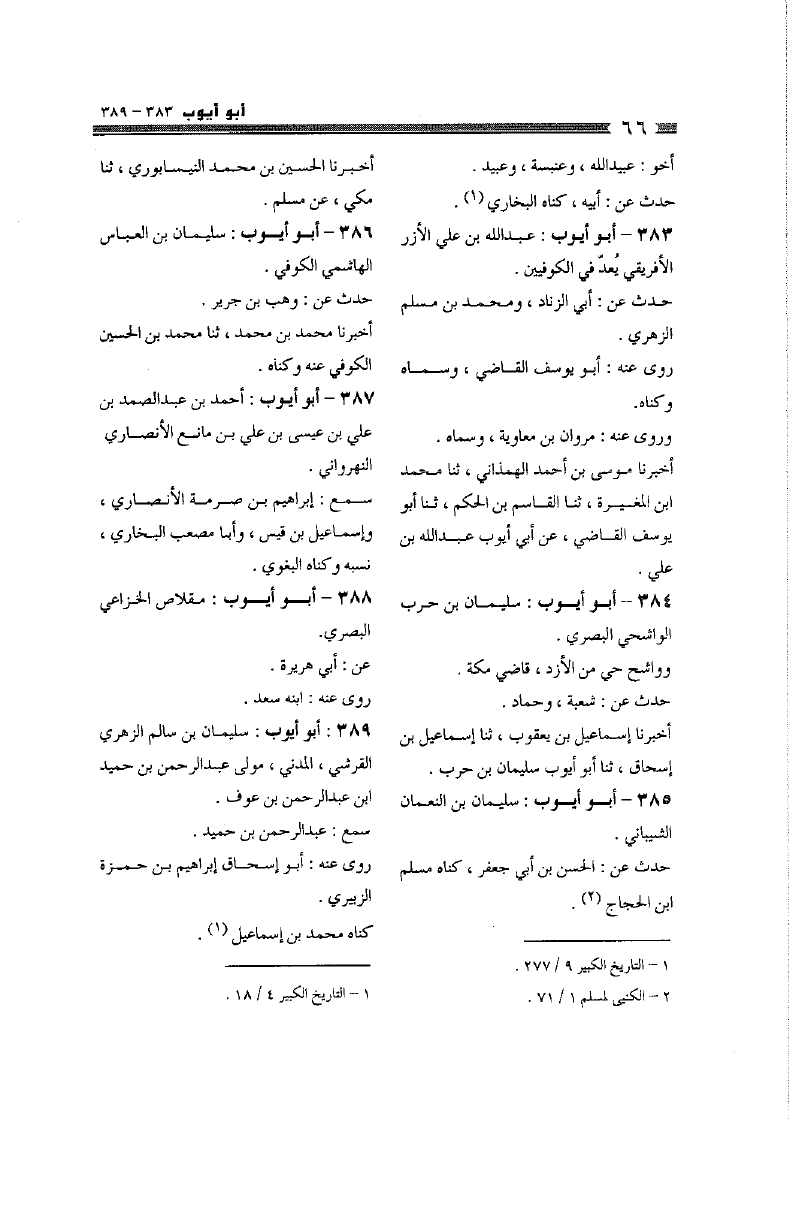 أبو أيوب ٣٨٣ – ٣٨٩
٦٦
أخو : عبيدالله ، وعنبسة ، وعبيد .
حدث عن : أبيه ، كناه البخاري (١) .
٣٨٣ – أبـو أيـوب : عبـدالله بن علي الأزر
الأفريقي يُعدّ في الكوفيين .
حـدث عن : أبي الزناد ، ومـحـمـد بن مسلم
الزهري .
روى عنه : أبـو يوسف القـاضي ، وسـمـاه
وكناه.
وروى عنه : مروان بن معاوية ، وسماه .
أخبرنا مـوسى بن أحمد الهمذاني ، ثنا محمد
ابن المغـيـرة ، ثنـا القـاسم بن الحكم ، ثـنا أبو
يوسف القـاضي ، عن أبي أيوب عبـدالله بن
علي .
٣٨٤ – أبـو أيـوب : سليـمـان بن حـرب
الواشحي البصري .
وواشح حي من الأزد ، قاضي مكة .
حدث عن : شعبة ، وحماد .
أخبرنا إسـماعيل بن يعقوب ، ثنا إسـماعيل بن
إسحاق ، ثنا أبو أيوب سليمان بن حرب .
٣٨٥ – أبــو أيــوب : سليمـان بن النعـمان
الشيباني .
حدث عن : الحسن بن أبي جعفر ، كناه مسلم
ابن الحجاج (٢) .
١ – التاريخ الكبير ٩ / ٢٧٧ .
٢ – الكنى لمسلم ١ / ٧١ .
أخـبـرنا الحسـين بن محـمـد النيـسـابوري ، ثنا
مكي ، عن مسلم .
٣٨٦ – أبـو أيـــوب : سليـمان بن العبـاس
الهاشمي الكوفي .
حدث عن : وهب بن جرير .
أخبرنا محمد بن محمد ، ثنا محمد بن الحسين
الكوفي عنه وكناه .
٣٨٧ – أبو أيـوب : أحمد بن عبـدالصمد بن
علي بن عيسى بن علي بـن مانـع الأنـصـاري
النهرواني .
سـمـع : إبراهيم بـن صـرمـة الأنـصـاري ،
وإسمـاعيل بن قيس ، وأبـا مصعب البـخاري ،
نسبه وكناه البغوي .
٣٨٨ – أبــــو أيــــوب : مـقلاص الخـزاعي
البصري.
عن : أبي هريرة .
روى عنه : ابنه سعد .
٣٨٩ : أبو أيوب : سليمـان بن سالم الزهري
القرشي ، المدني ، مولى عبـدالرحمن بن حميد
ابن عبدالرحمن بن عوف .
سمع : عبدالرحمن بن حميد .
روى عنه : أبـو إسـحـاق إبراهيم بـن حـمـزة
الزبيري .
كناه محمد بن إسماعيل (١) .
١ – التاريخ الكبير ٤ / ١٨ .